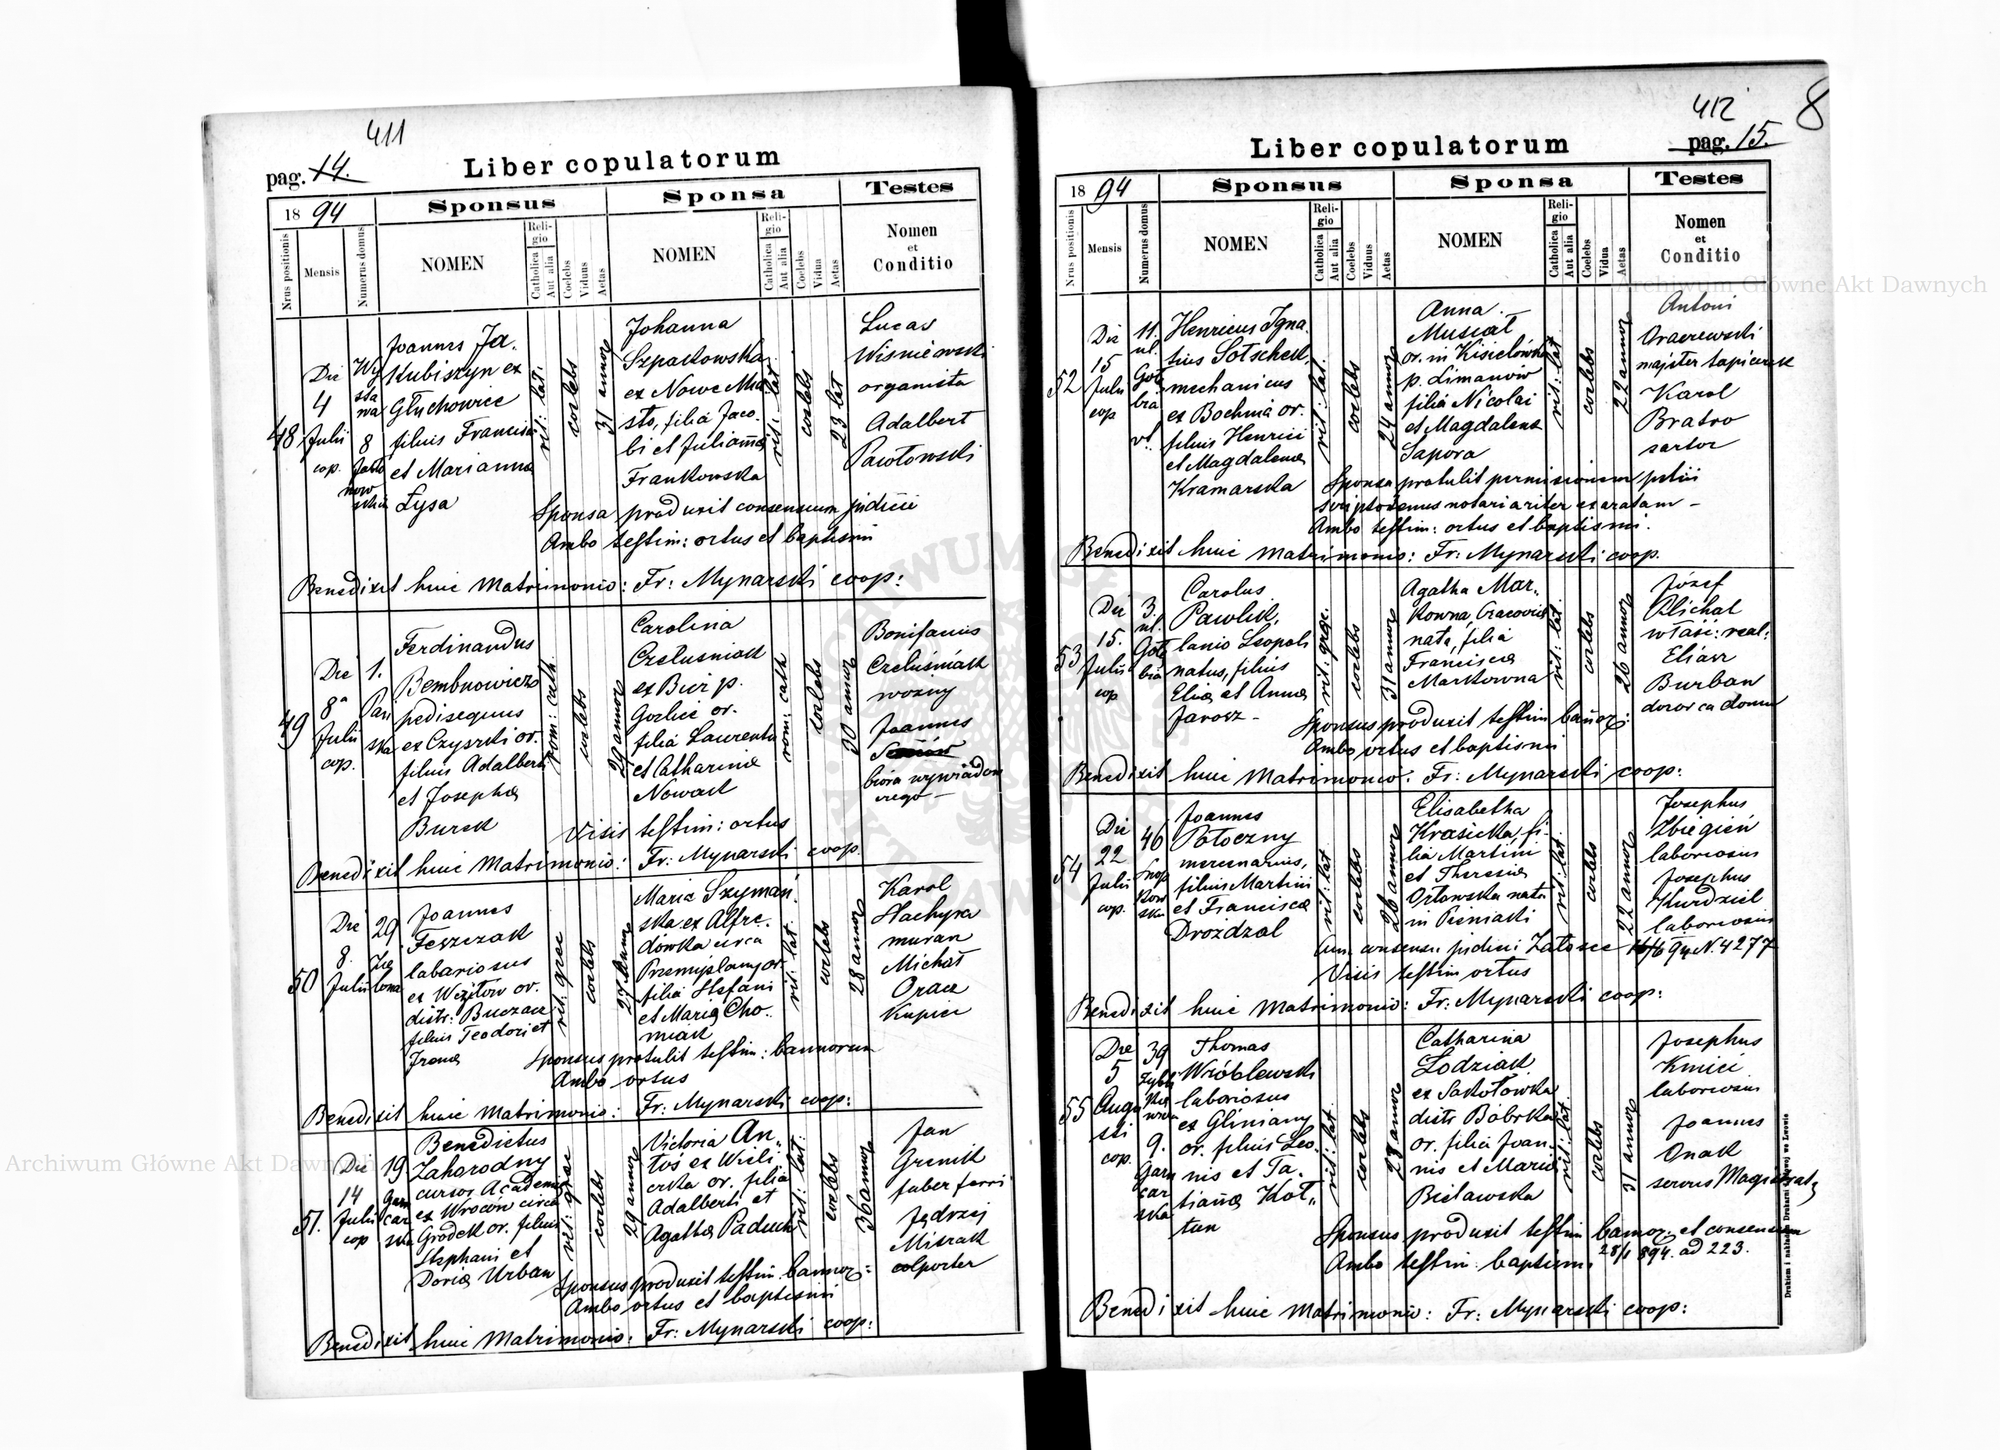 411
pag. 14.
Liber copulatorum
1894
Sponsus
Sponsa
Testes
Nrus positionis
Mensis
Numerus domus
NOMEN
Religio
Catholica
Aut alia
Coelebs
Viduus
Aetas
NOMEN
Religio
Catholica
Aut alia
Coelebs
Vidua
Aetas
Nomen
et
Conditio
48
Die
4
Julii
cop.
8
Joannes Ja-
kubiszyn ex
Głuchowice
filius Francisci
et Marianna
Łysa
rit: lat.
coelebs
31 annor
Johanna
Szpakowska
ex Nowe Mia
sto, filia Jaco-
bi et Julianna
Frankowska
rit: lat
coelebs
23 lat
Lucas
Wisniewski
organista
Adalbert
Pawłowski
Sponsa produxit consensum judicii
Ambo testim: ortus et baptismi
Benedixit huic Matrimonio: Fr: Mynarski coop:
49
Die
8ª
Julii
cop.
1.
Pań
ska
Ferdinandus
Bembnowicz
pedisequus
ex Czyszki or.
filius Adalberti
et Josepha
Burek
rom: cath
coelebs
29 annor
Carolina
Czeluśniak
ex Biecz p.
Gorlice or.
filia Laurentii
et Catharina
Nowak
rom: cath
coelebs
30 annor
Bonifacius
Czeluśniak
woźny
Joannes
biora wywiadow
czego
Visis testim: ortus
Benedixit huic Matrimonio: Fr: Mynarski coop
50
Die
8.
Julii
29
Zie
lona
Joannes
Feszczak
laboriosus
distr: Buczacz
filius Teodori et
Irena
rit: graec
coelebs
27 annor
Maria Szymań
ska ex Alfre-
dówka circa
Przemyslany or.
filia Stefani
et Maria Cho-
miak
rit: lat.
coelebs
28 annor
Karol
Stachyra
murarz
Michał
Oracz
Kupiec
Sponsus protulit testim: bannorum
Ambo ortus
Benedixit huic Matrimonio: Fr: Mynarski coop:
51.
Die
14
Julii
cop
19
Gar
car
ska
Benedictus
Zahorodny
cursor Academ
ex Wrocow circa
Gródek or. filius
Stephani et
Doria Urban
rit: graec
coelebs
29 annor
Victoria An-
toś ex Wieli-
czka or. filia
Adalberti et
Agatha Paduch
rit: lat:
coelebs
36 annor
Jan
Grenik
faber ferri
Jędrzej
Misrak
colporter
Sponsus produxit testim bannor:
Ambo ortus et baptismi
Benedixit huic Matrimonio: Fr: Mynarski coop:
412
8
Liber copulatorum
pag. 15.
1894
Sponsus
Sponsa
Testes
Nrus positionis
Mensis
Numerus domus
NOMEN
Religio
Catholica
Aut alia
Coelebs
Viduus
Aetas
NOMEN
Religio
Catholica
Aut alia
Coelebs
Vidua
Aetas
Nomen
et
Conditio
52
Die
15
Julii
cop
11.
ul.
Goł
bia
Henricus Igna
tius Sotschek
mechanicus
ex Bochnia or.
filius Henrici
et Magdalena
Kramarska
rit: lat.
coelebs
24 annor
Anna
Musiał
or. in Kisielówka
p. Limanow
filia Nicolai
et Magdalena
Sapora
rit: lat
coelebs
22 annor
Antoni
Oraczewski
majster tapicersk
Karol
Bratro
sartor
Sponsa protulit permissionem
Ambo testim: ortus et baptismi.
Benedixit huic Matrimonio: Fr: Mynarski coop.
53
Die
15.
Julii
cop
3.
ul.
Goł
bia
Carolus
Pawlik,
lanio Leopoli
natus, filius
Elia et Anna
Jarosz
rit: graec.
coelebs
31 annor
Agatha Mar-
kowna, Cracoviae
nata, filia
Francisca
Markowna
rit: lat.
coelebs
26 annor
Józef
Plichal
właśc: real:
Eliasz
Burban
dozorca domu
Sponsus produxit testim bannor:
Ambo ortus et baptismi
Benedixit huic Matrimonio. Fr: Mynarski coop:
54
Die
22
Julii
cop.
46
Snop
kow
ska
Joannes
Potoczny
mercenarius,
filius Martini
et Francisca
Drozdzal
rit: lat
coelebs
26 annor
Elisabetha
Krasicka, fi-
lia Martini
et Theresia
Orłowska nata
in Pieniaki
rit: lat.
coelebs
22 annor
Josephus
Zbiegień
laboriosus
Josephus
Kurdziel
laboriosus
Cum consensu judicii Załosce 16/6 94 N. 4277
Visis testim ortus
Benedixit huic Matrimonio: Fr: Mynarski coop:
55
Die
5
Augu
sti
cop.
39
9.
Gar
car
ska
Thomas
Wróblewski
laboriosus
ex Gliniany
or. filius Leo-
nis et Ta-
tianna Koł-
tun
rit: lat
coelebs
28 annor
Catharina
Łodziak
ex Sokołowka
distr Bóbrka
or. filia Joan-
nis et Maria
Bielawska
rit: lat.
coelebs
31 annor
Josephus
Kmieć
laboriosus
Joannes
Onak
servus Magistrat
Sponsus produxit testim bannor. et consensum
28/1 894. ad 223.
Ambo testim baptismi
Benedixit huic Matrimonio: Fr: Mynarski coop:
Archiwum Główne Akt Dawnych
Archiwum Główne Akt Dawnych